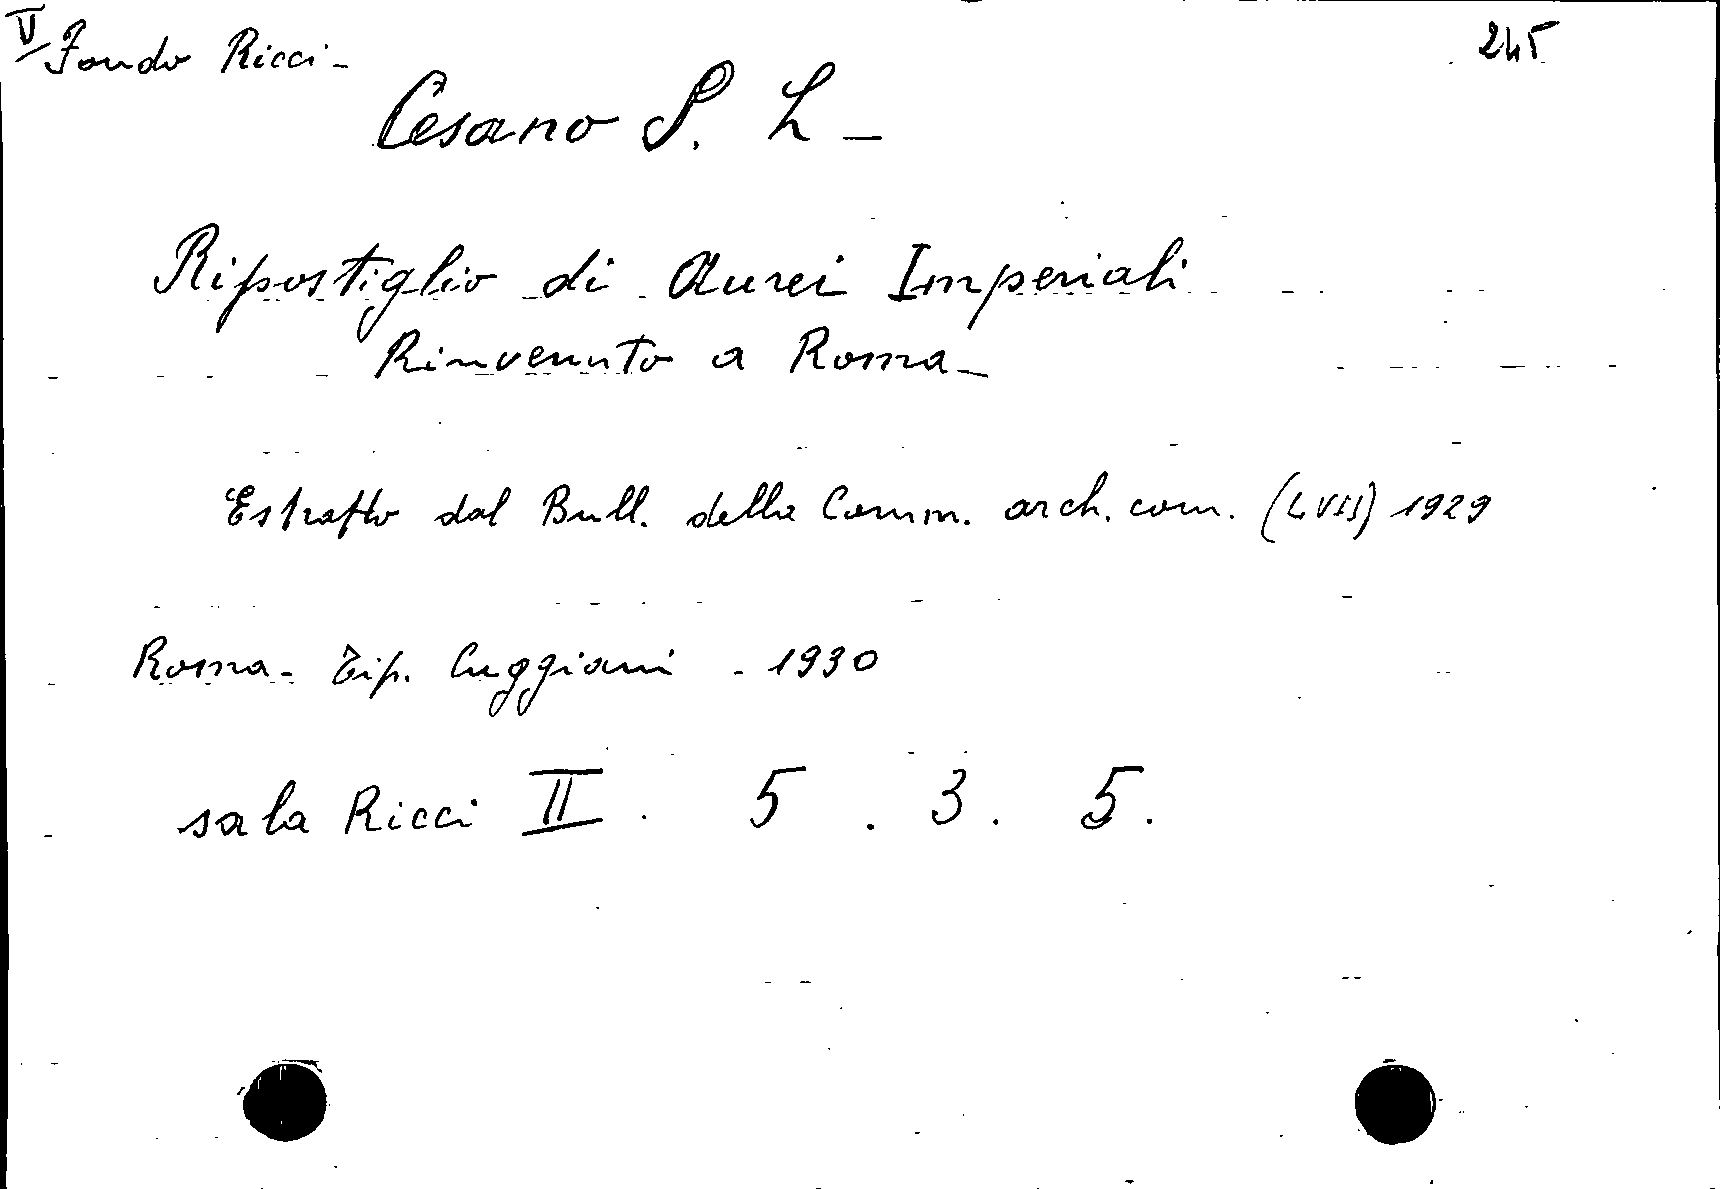 V Fondo Ricci - 245
Cesano S. L -
Ripostiglio di Aurei Imperiali
Rinvenuto a Roma -
Estratto dal Bull. della Comm. arch. com. (LVII) 1929
Roma - Tip. Cuggiani - 1930
sala Ricci II . 5 . 3 . 5 .